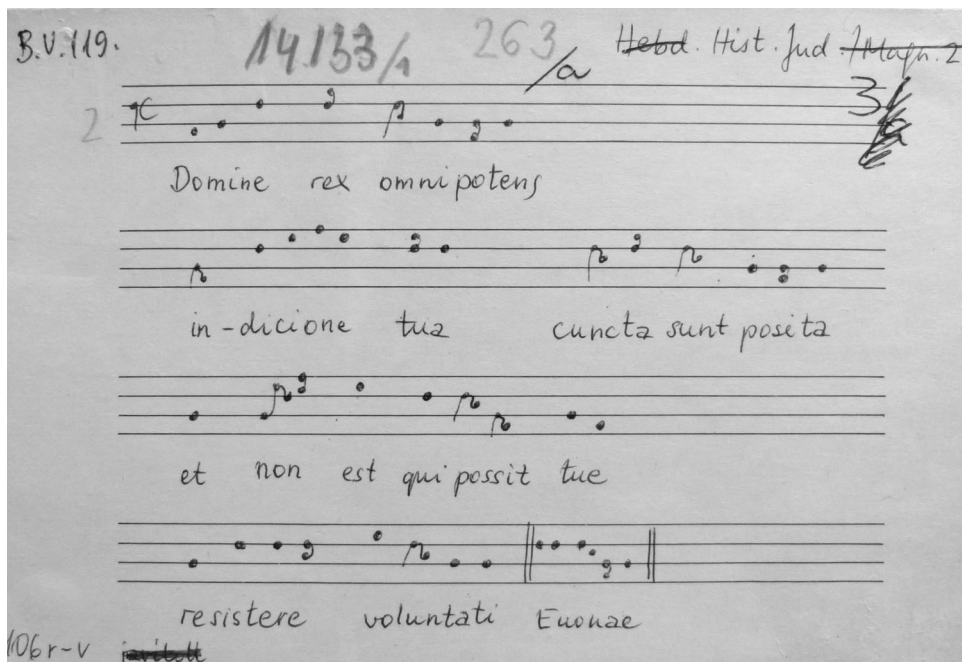 B.V.119. 14.133/1 263 Hebd. Hist. Jud. /Magn. 2
/a
2
3/a
Domine rex omnipotens
in-dicione tua cuncta sunt posita
et non est qui possit tue
resistere voluntati Euouae
106r-v